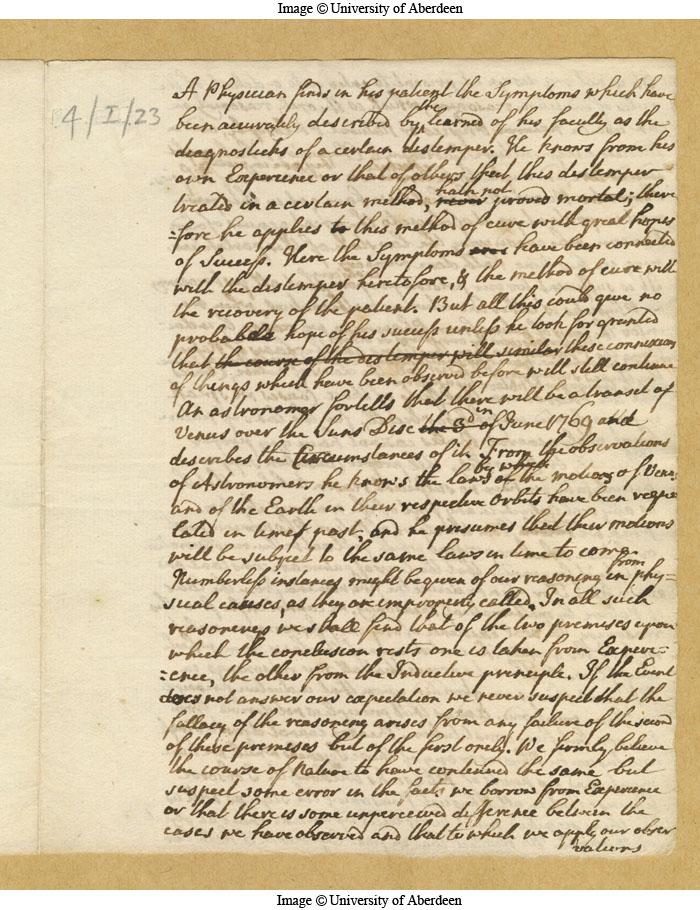 Image © University of Aberdeen
4/I/23
A Physician finds in his patient the Symptoms which have
been accurately described by the learned of his faculty as the
diagnosticks of a certain distemper. He knows from his
own Experience or that of others that this distemper
treated in a certain method, never hath not proved mortal; there
=fore he applies to this method of cure with great hopes
of Success. Here the Symptoms have been connected
with the distemper heretofore, & the method of cure with
the recovery of the patient. But all this could give no
probable hope of his success unless he took for granted
that the course of the distemper will similar these connexions
of things which have been observed before will still continue
An astronomer fortells that there will be a transit of
Venus over the Suns Disc the 3d in of June 1769 and
describes the Circumstances of it. From the observations
of Astronomers he knows the laws of by which the motions of Venus
and of the Earth in their respective Orbits have been regu
lated in times past, and he presumes that their motions
will be subject to the same laws in time to come.
Numberless instances might be given of our reasoning in from phy=
sical causes, as they are improperly called. In all such
reasonings we shall find that of the two premises upon
which the conclusion rests one is taken from Experi=
=ence, the other from the Inductive principle. If the Event
does not answer our expectation we never suspect that the
fallacy of the reasoning arises from any failure of the second
of these premises but of the first only. We firmly believe
the course of Nature to have continued the same but
suspect some error in the facts we borrow from Experience
or that there is some unperceived difference between the
cases we have observed and that to which we apply our obser
vations
Image © University of Aberdeen